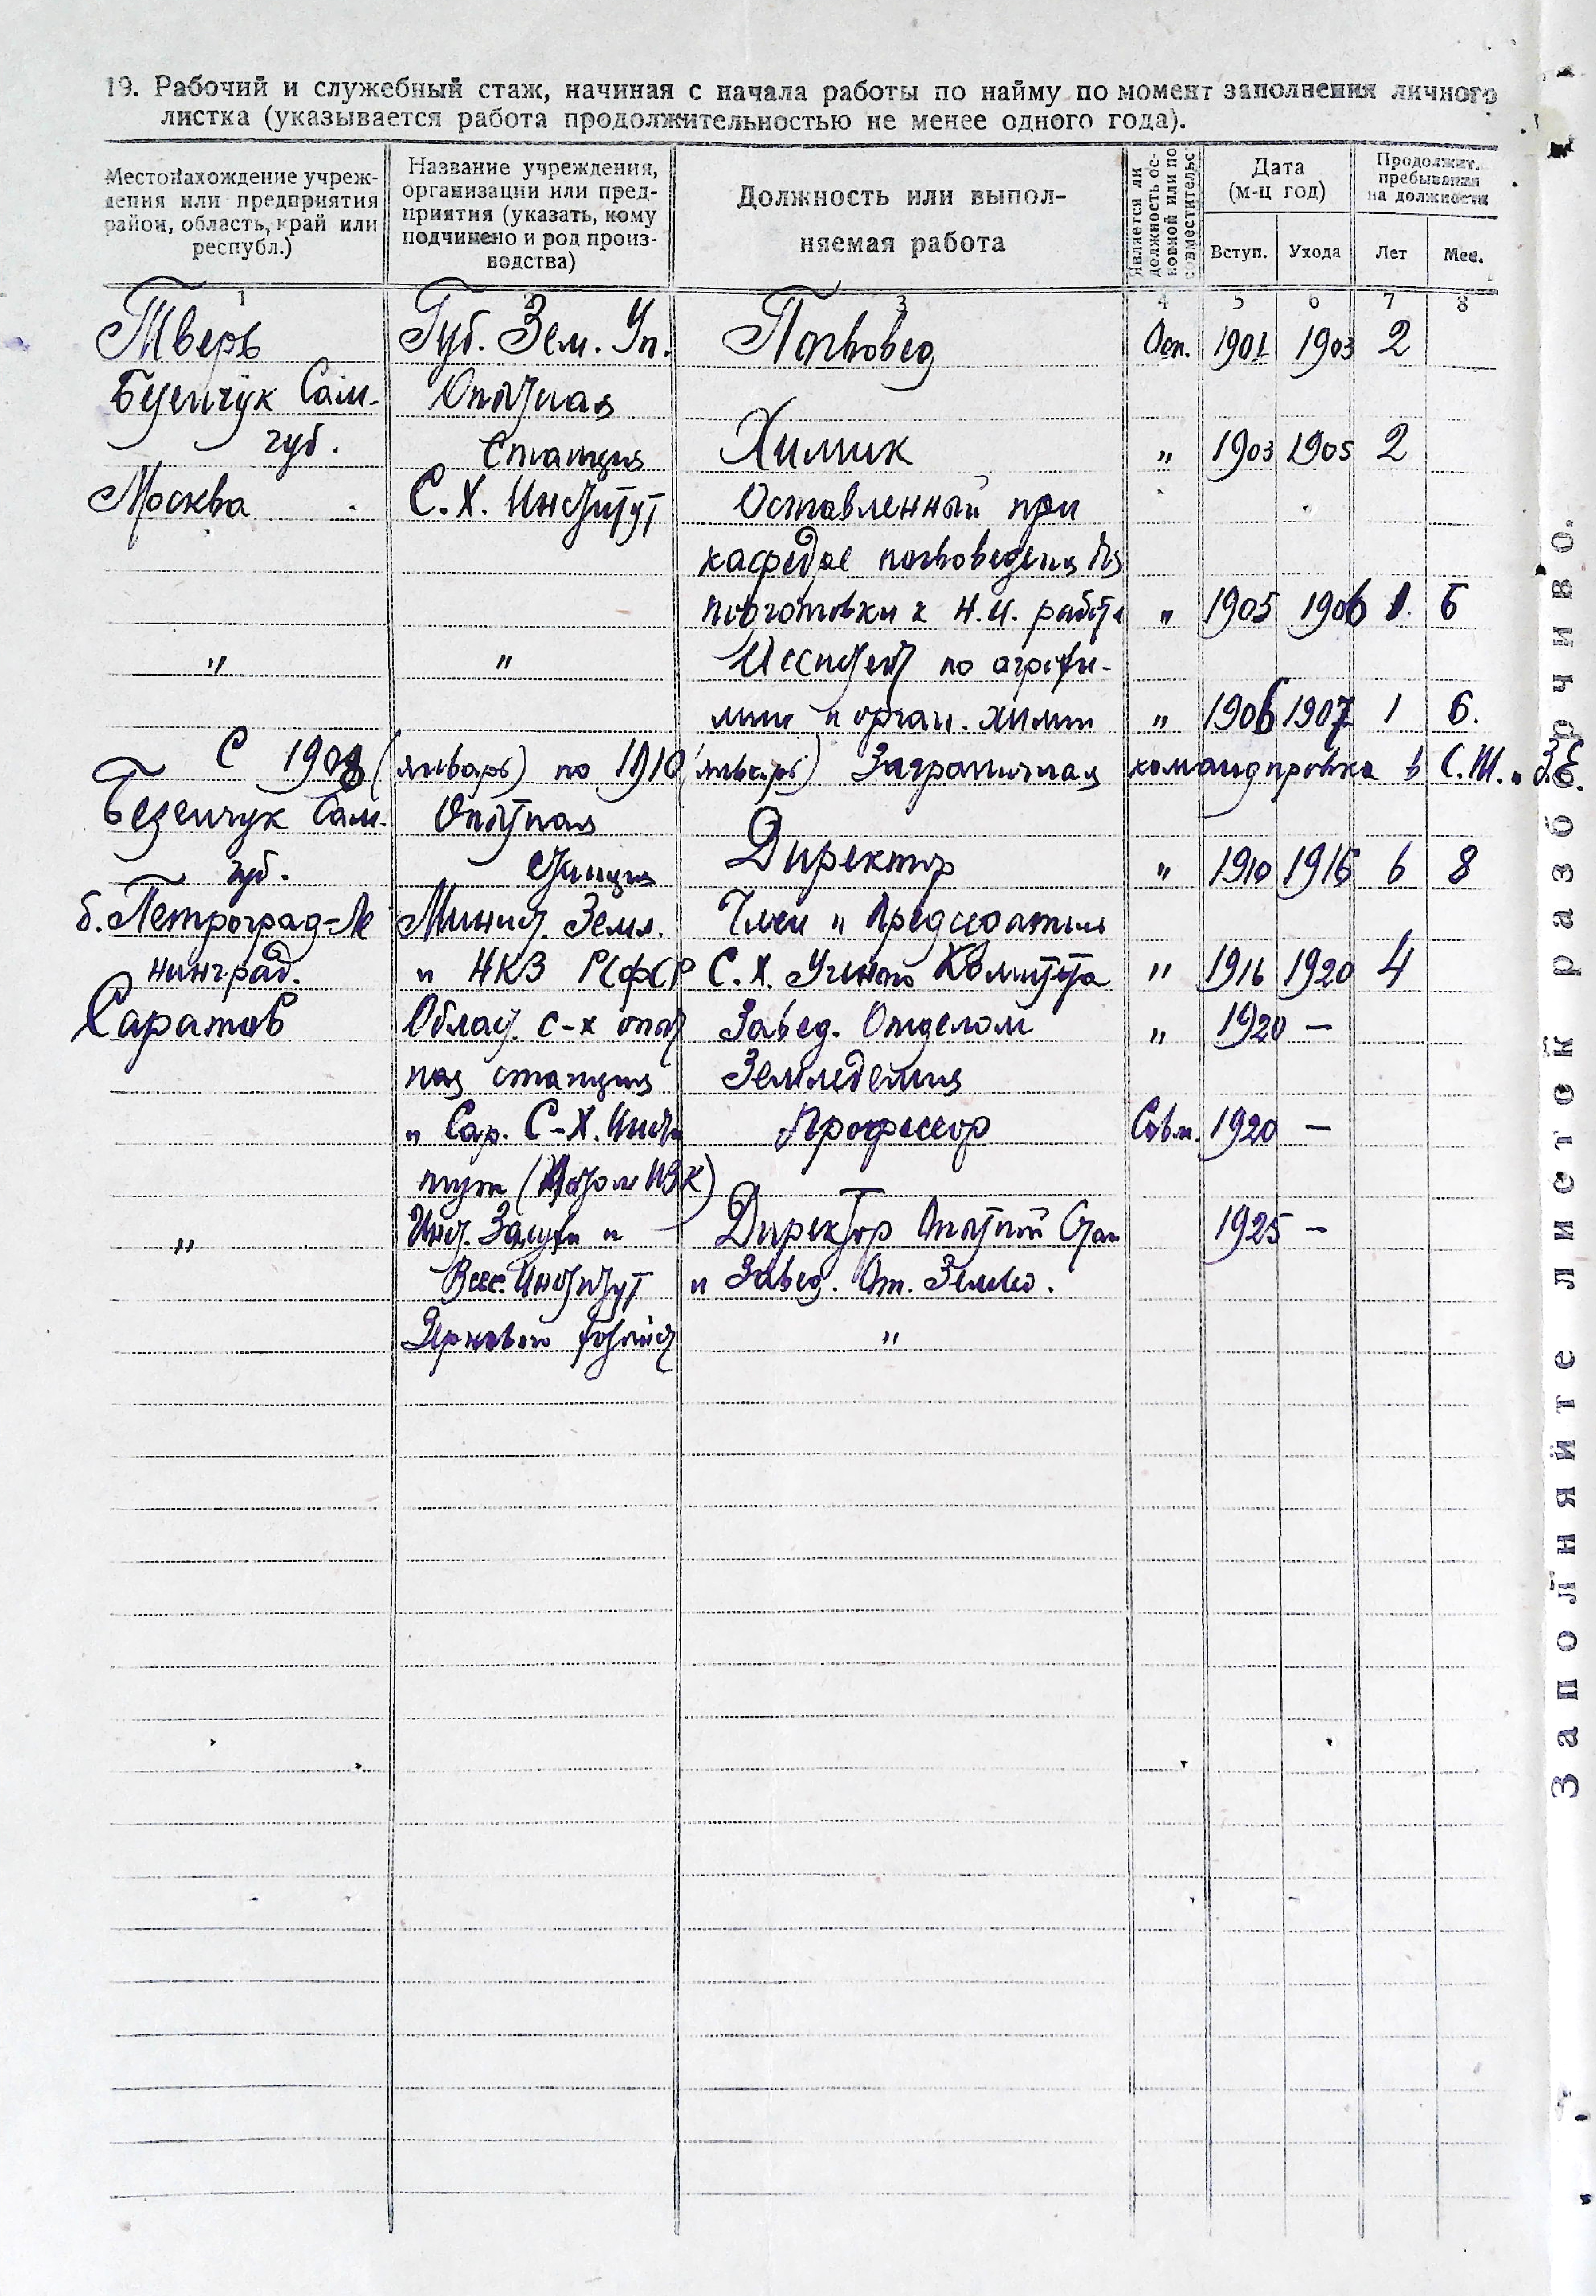 19. Рабочий и служебный стаж, начиная с начала работы по найму по момент заполнения личного
листка (указывается работа продолжительностью не менее одного года).
Местонахождение учреж-
дения или предприятия
район, область, край или
республ.)
Название учреждения,
организации или пред-
приятия (указать, кому
подчинено и род произ-
водства)
Должность или выпол-
няемая работа
Является ли
должность ос-
новной или по
совместительс
Дата
(м-ц год)
Вступ. Ухода
Продолжит.
пребывания
на должности
Лет Мес.
1 2 3 4 5 6 7 8
Тверь Губ. Зем. Уп. Почвовед Осн. 1901 1903 2
Безенчук Сам. Опытная
губ. Станция Химик „ 1903 1905 2
Москва С. Х. Институт Оставленный при
кафедре почвоведения для
подготовки к Н.И. работе „ 1905 1906 1 6
„ „ Ассистент по агрохи-
мии и орган. химии „ 1906 1907 1 6.
С 1908 (январь) по 1910 (январь) Заграничная командировка в С.Ш. и З.Е.
Безенчук Сам. Опытная
губ. Станция Директор „ 1910 1916 6 8
б. Петроград-Ле Минист. Земл. Член и Председатель
нинград. и НКЗ РСФСР С. Х. Ученого Комитета „ 1916 1920 4
Саратов Област. с-х опыт Завед. Отделом „ 1920 —
ная станция Земледелия
и Сар. С-Х. Инсти Профессор Совм. 1920 —
тут
„ Инст. Засухи и Директор Опытной Стан 1925 —
Всес. Институт и Завед. От. Землед.
Зернового Хозяйст „
Заполняйте листок разборчиво.